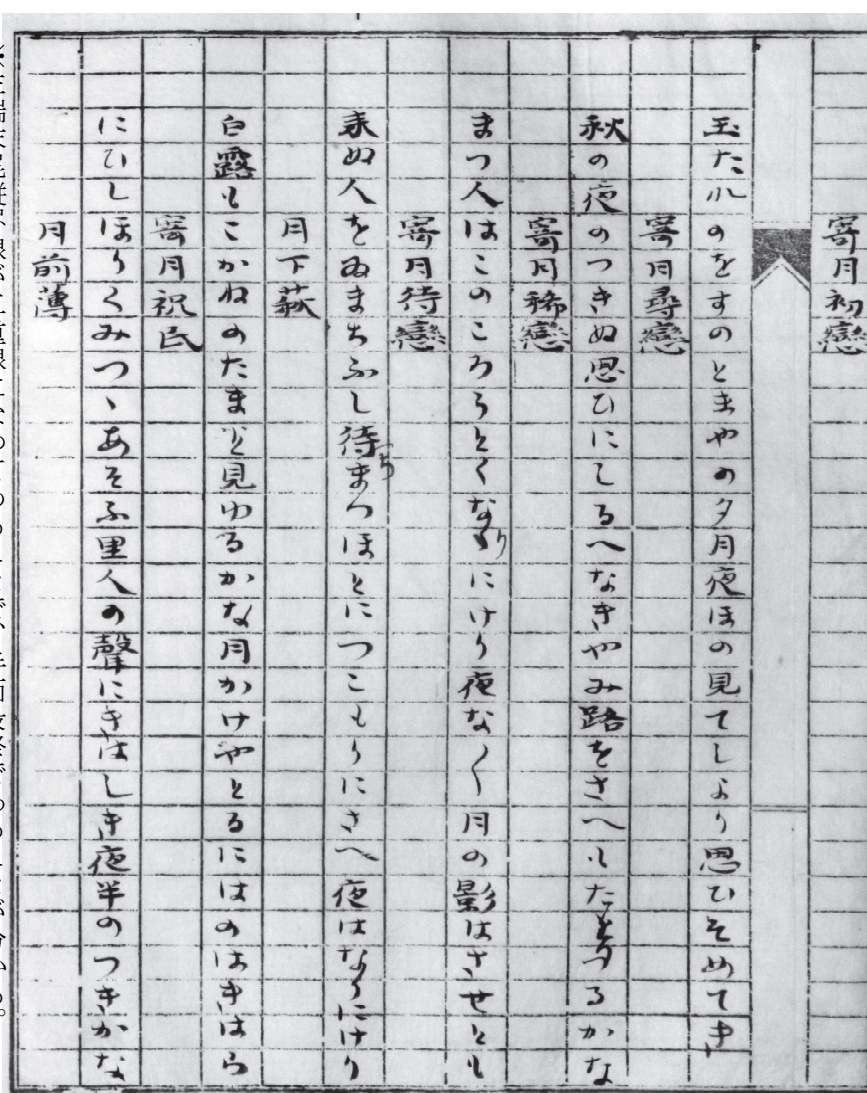 寄月初戀
玉たれのをすのとまやの夕月夜ほの見てしより思ひそめてき
寄月尋戀
秋の夜のつきぬ思ひにしるへなきやみ路をさへもたとるかな
寄月稀戀
まつ人はこのころうとくなりにけり夜な〱月の影はさせとも
寄月待戀
来ぬ人をゐまちふし待まつほとにつこもりにさへ夜はなりにけり
月下萩
白露もこかねのたまと見ゆるかな月かけやとるにはのはきはら
寄月祝民
にひしほりくみつゝあそふ里人の聲にきはしき夜半のつきかな
月前薄